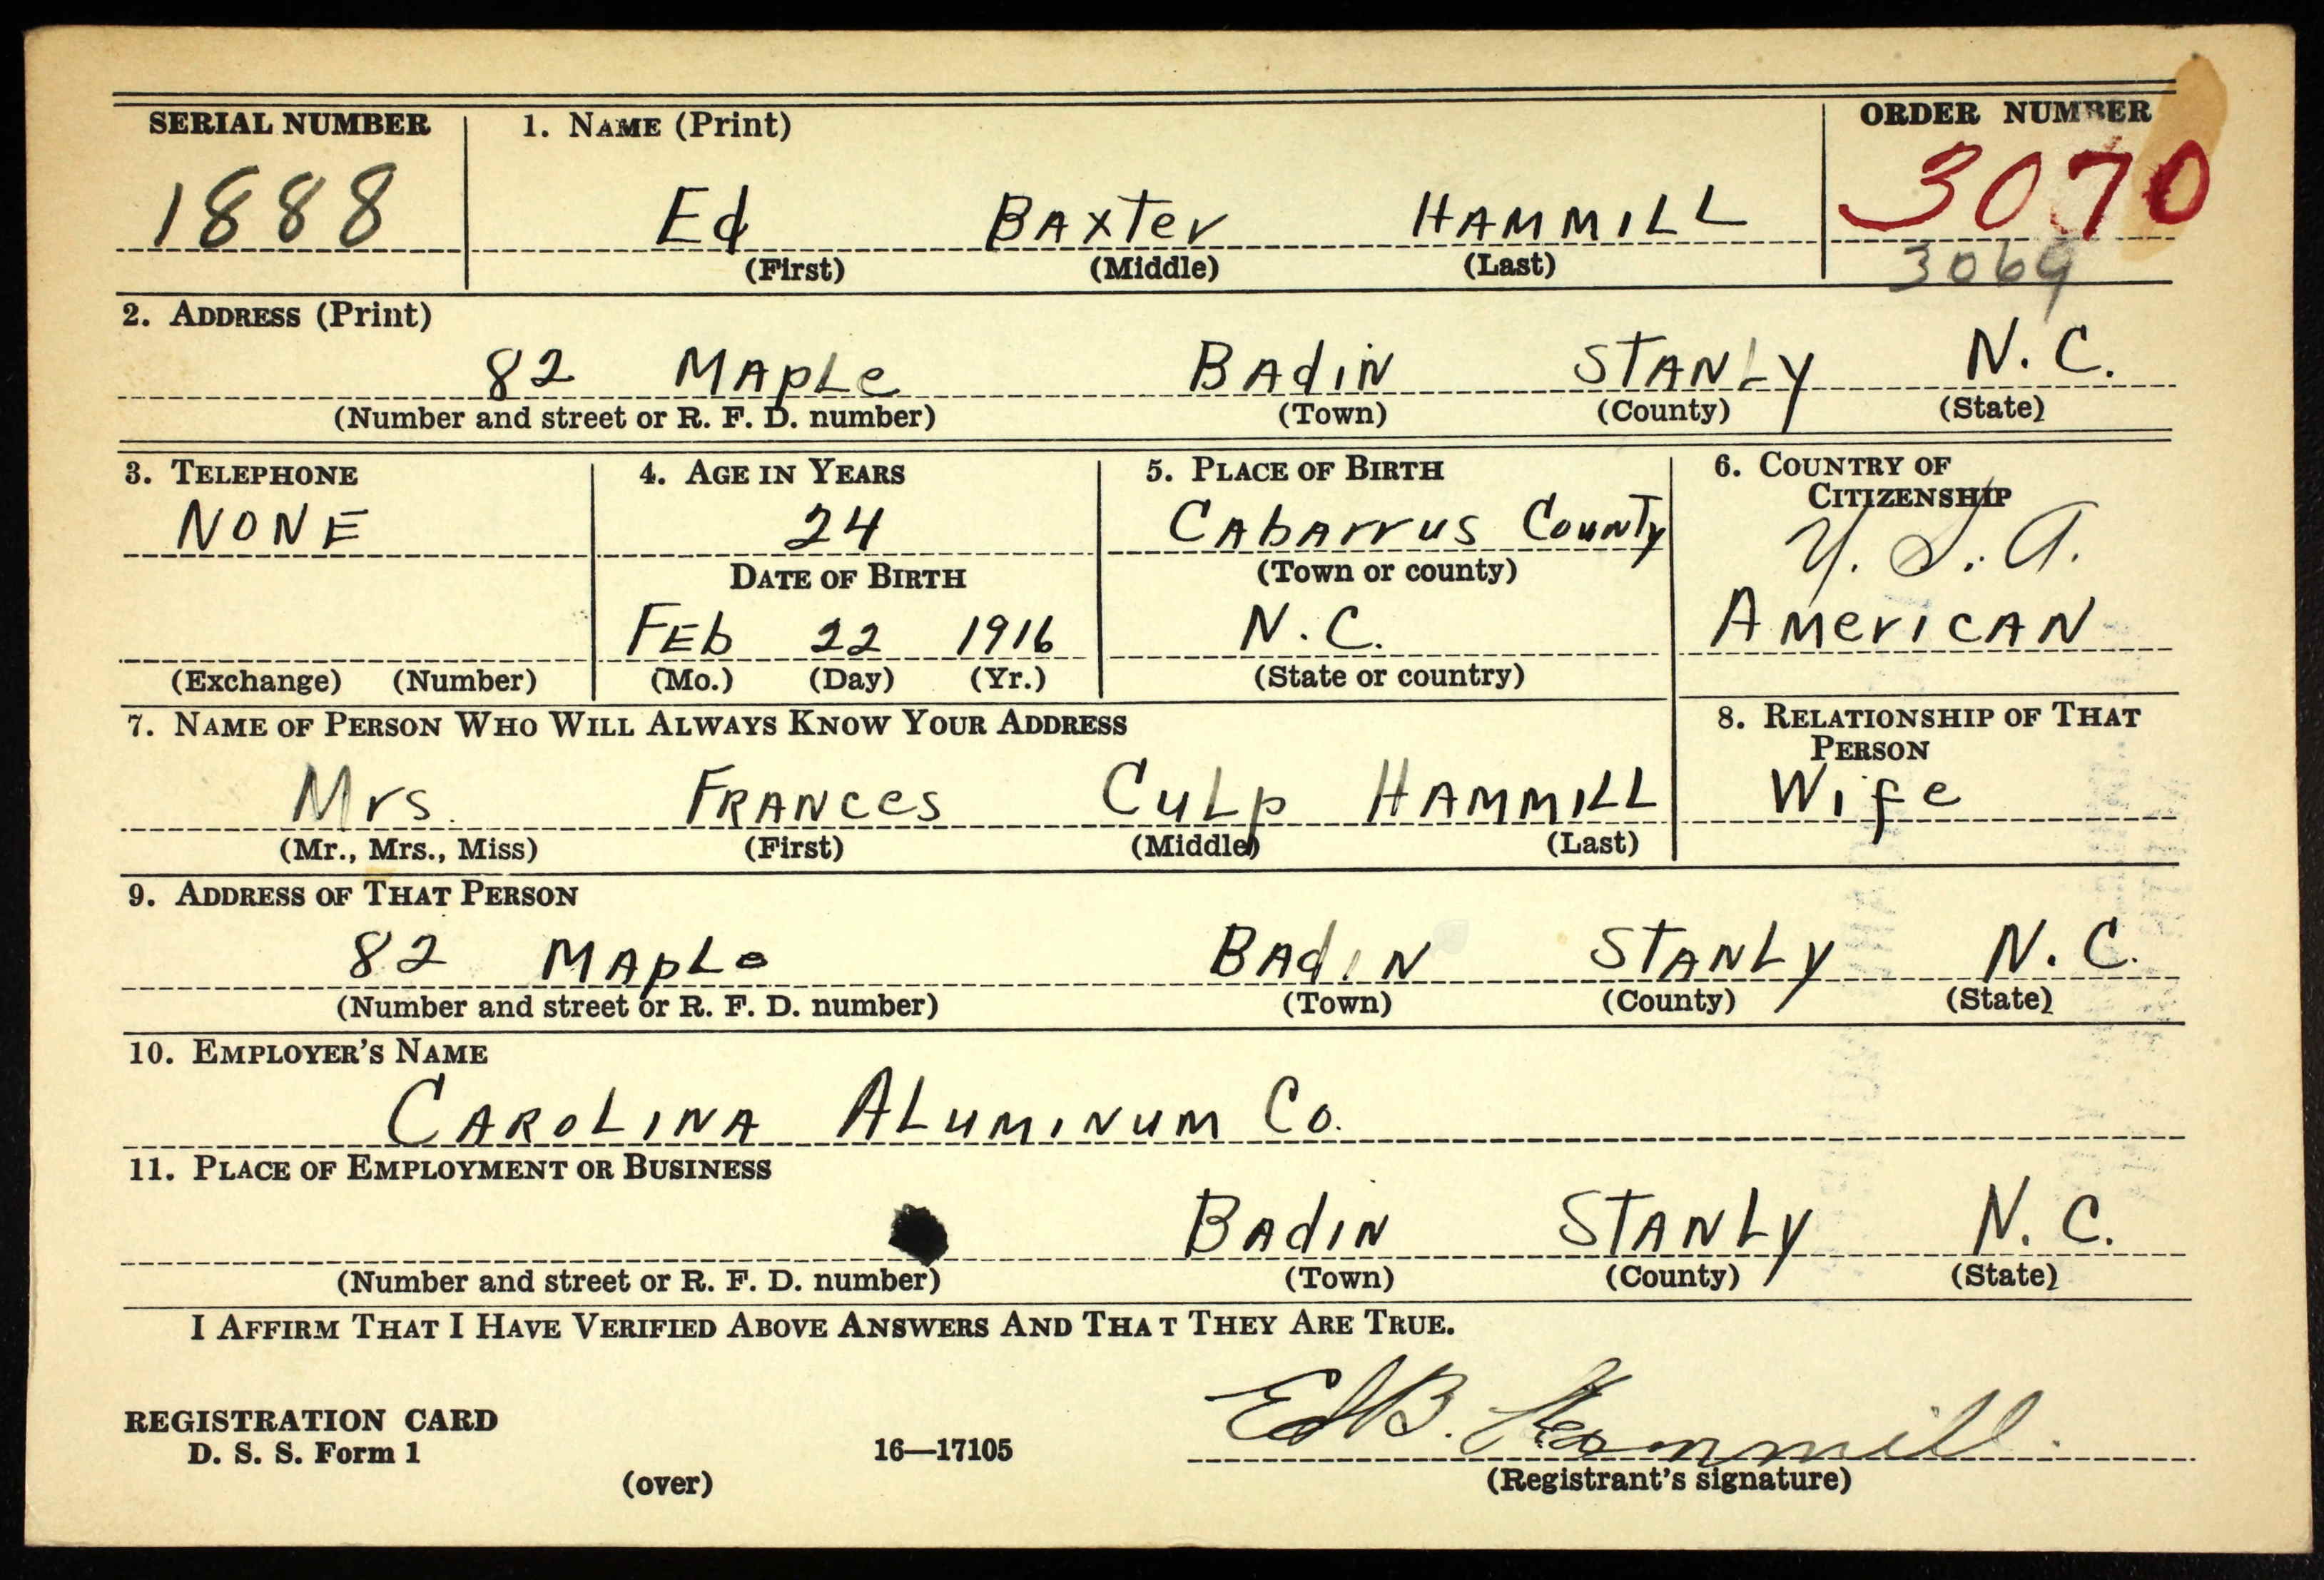 SERIAL NUMBER 1. NAME (Print) ORDER NUMBER
1888 Ed BAxTer HAMMILL 3070
(First) (Middle) (Last) 3069
2. ADDRESS (Print)
82 MApLe BAdiN STANLY N.C.
(Number and street or R. F. D. number) (Town) (County) (State)
3. TELEPHONE 4. AGE IN YEARS 5. PLACE OF BIRTH 6. COUNTRY OF CITIZENSHIP
NONE 24 CAbArrus CouNTy U.S.A.
DATE OF BIRTH (Town or county)
FEb 22 1916 N.C. AMericAN
(Exchange) (Number) (Mo.) (Day) (Yr.) (State or country)
7. NAME OF PERSON WHO WILL ALWAYS KNOW YOUR ADDRESS 8. RELATIONSHIP OF THAT PERSON
Mrs. FRANces CuLp HAMMILL Wife
(Mr., Mrs., Miss) (First) (Middle) (Last)
9. ADDRESS OF THAT PERSON
82 MApLe BAdiN STANLY N.C.
(Number and street or R. F. D. number) (Town) (County) (State)
10. EMPLOYER'S NAME
CAROLINA ALuMINuM Co.
11. PLACE OF EMPLOYMENT OR BUSINESS
BAdIN STANLY N.C.
(Number and street or R. F. D. number) (Town) (County) (State)
I AFFIRM THAT I HAVE VERIFIED ABOVE ANSWERS AND THAT THEY ARE TRUE.
Ed B. Hammill.
REGISTRATION CARD
D. S. S. Form 1 16—17105 (Registrant's signature)
(over)